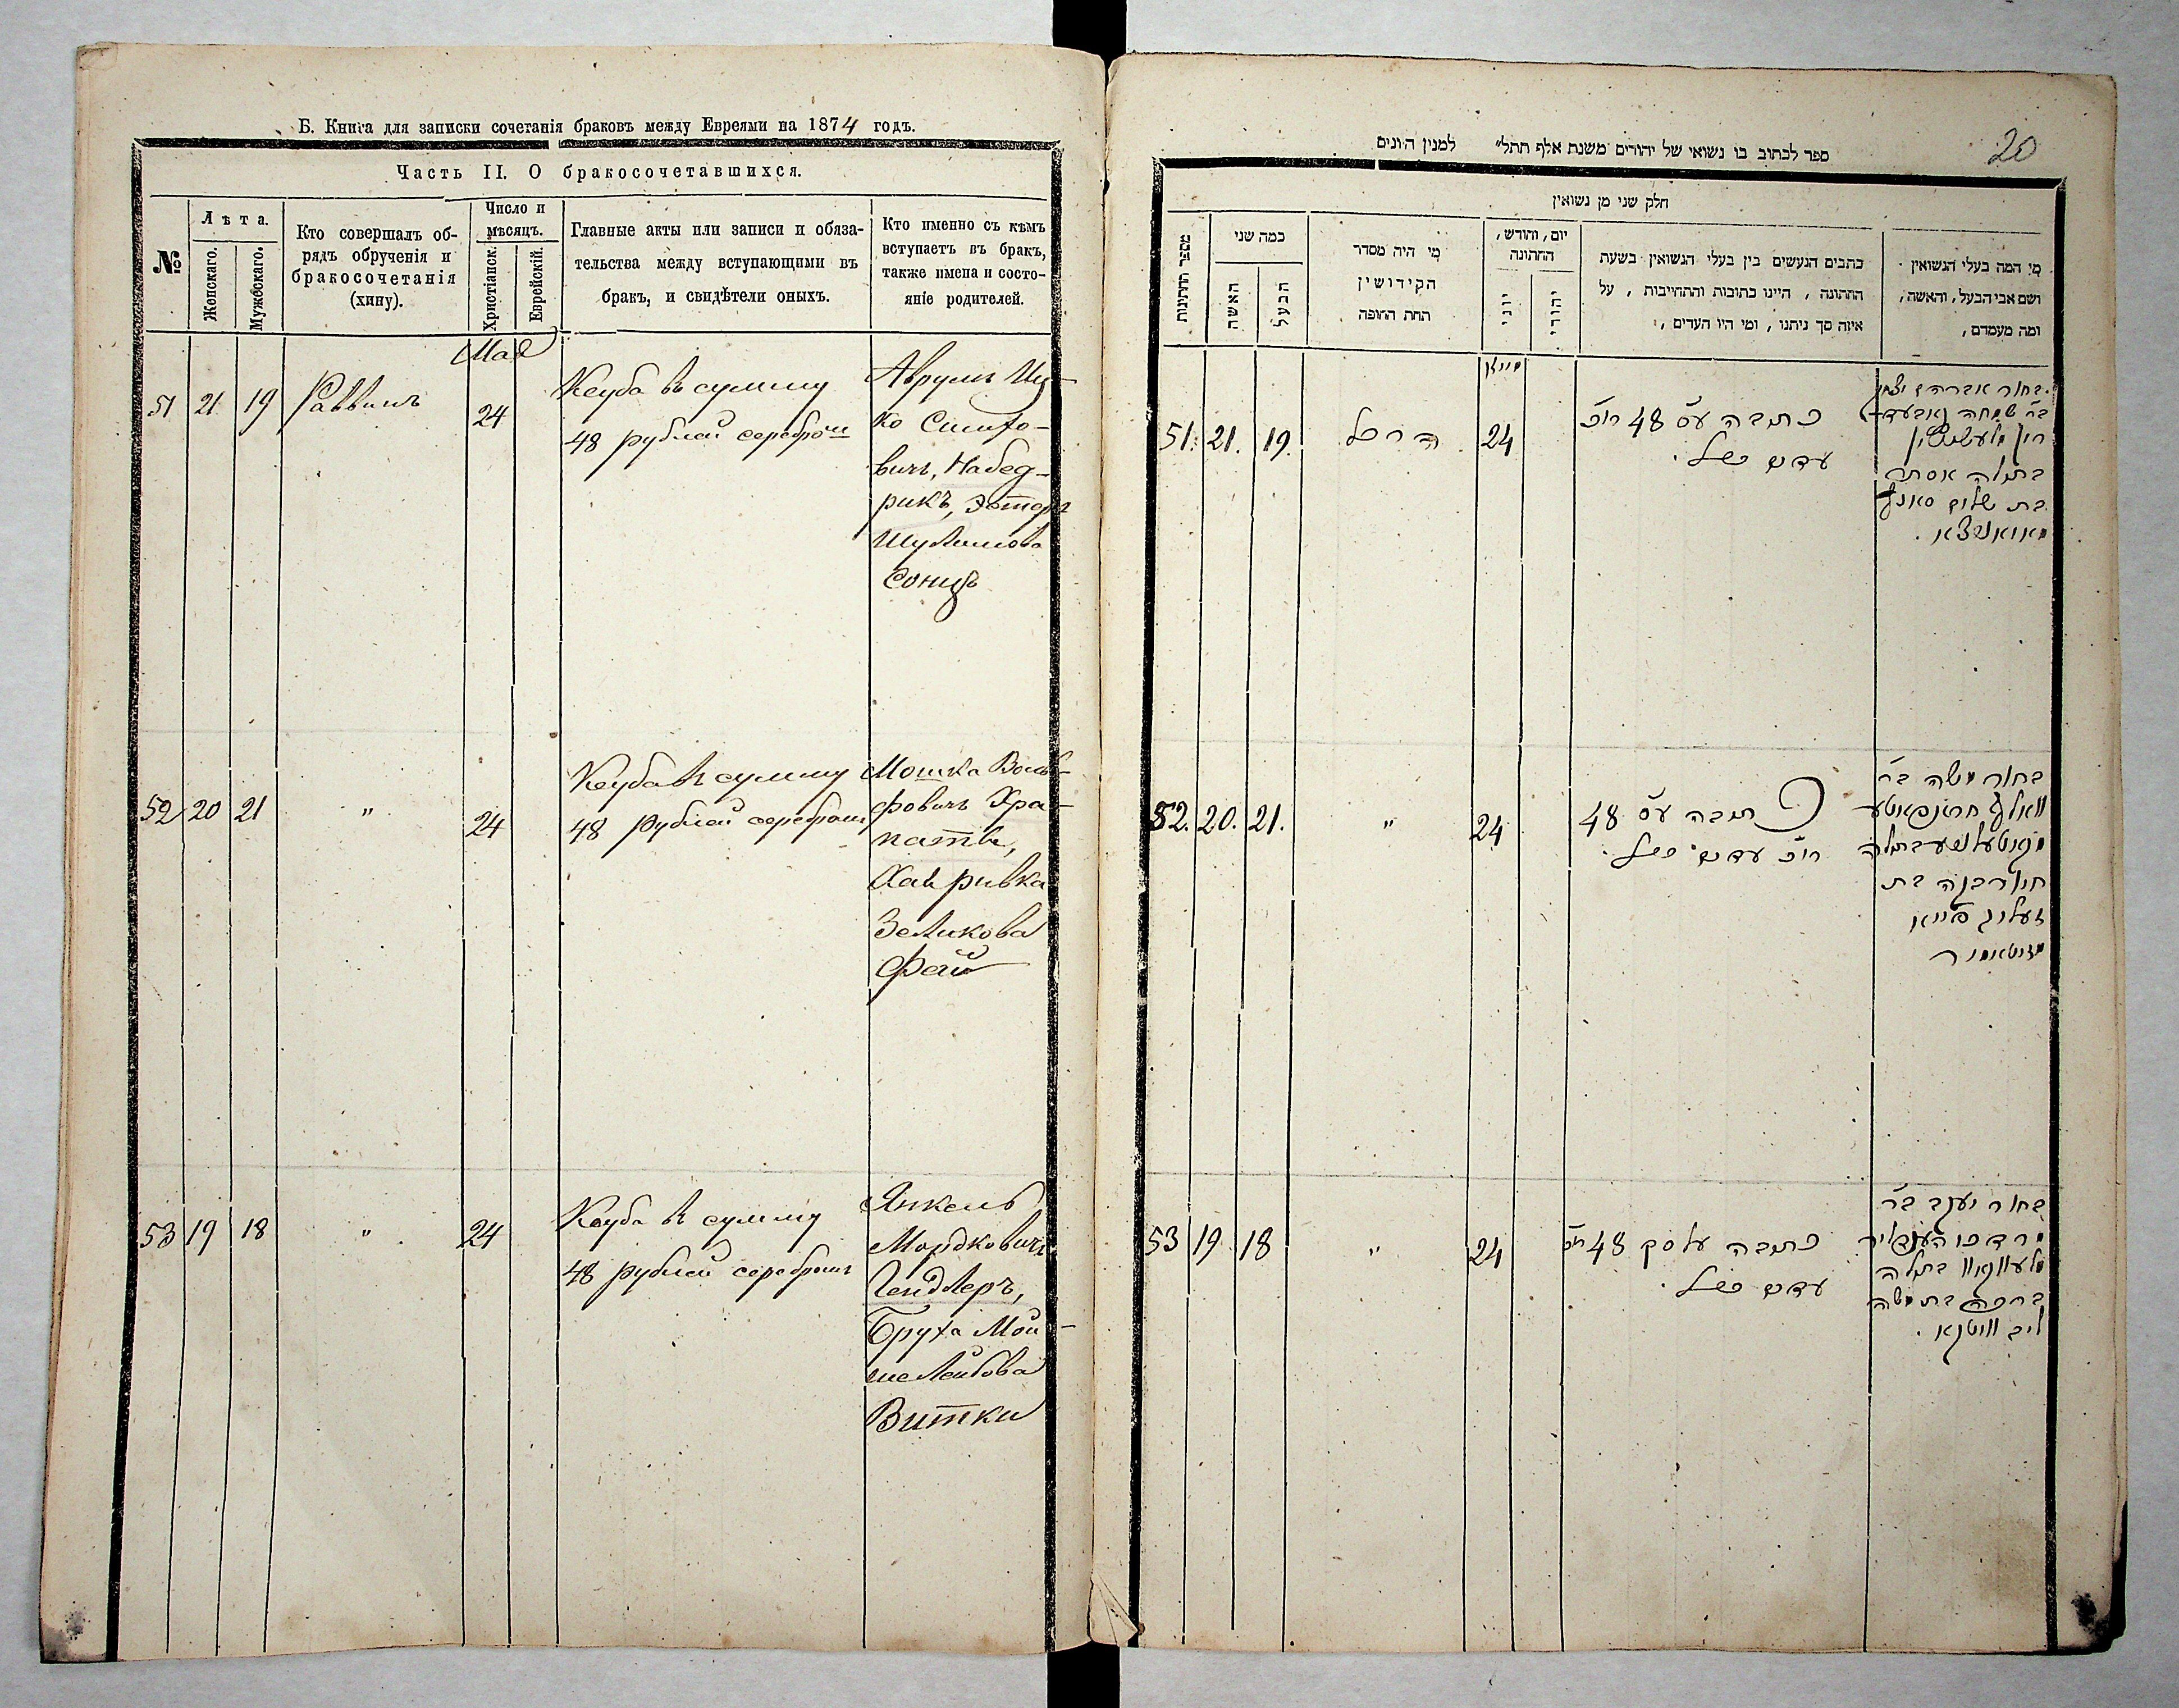 Б. Книга для записки сочетанія браковъ между Евреями на 1874 годъ.
Часть II. О бракосочетавшихся.
№
Лѣта.
Женскаго.
Мужескаго.
Кто совершалъ об-
рядъ обрученія и
бракосочетанія
(хину).
Число и
мѣсяцъ.
Христіанск.
Еврейскій.
Главные акты или записи и обяза-
тельства между вступающими въ
бракъ, и свидѣтели оныхъ.
Кто именно съ кѣмъ
вступаетъ въ бракъ,
также имена и состо-
яніе родителей.
51 21 19 Раввинъ
Мая
24
Кеуба въ сумму
48 рублей серебром
Аврумъ Иц-
ко Симхо-
вичъ, Набед-
рикъ, Эстеръ
Шулимова
Сонцъ
52 20 21 " 24
Кеуба въ сумму
48 рублей серебромъ
Мошка Воль-
фовичъ Хра-
патъ,
Хая ривка
Зеликова
Фай
53 19 18 " 24
Кеуба въ сумму
48 рублей серебромъ
Янкель
Мордковичъ
Гендлеръ,
Бруха Мой-
ше Лейбова
Витки
20
ספר לכתוב בו נשואי של יהודים משנת אלף תתל״ למנין היונים
חלק שני מן נשואין
מספר החתונות
כמה שני
האשה
הבעל
מי היה מסדר
הקידושין
תחת החופה
יום, וחודש,
החתונה
יוני
יהודי
כתבים הנעשים בין בעלי הנשואין בשעת
החתונה, היינו כתובות והתחייבות, על
איזה סך ניתנו, ומי היו העדים,
מי המה בעלי הנשואין
ושם אבי הבעל, והאשה,
ומה מעמדם,
51. 21. 19. 24
כתבה עס 48
עדים
בחור אברהם יצחק
ב״ר שמחה
בתולה אסתר
בת שלום
52. 20. 21. " 24
כתבה עס 48
עדים
בחור משה ב״ר
וואלף
בתולה
חי׳ רבקה בת
זעליג פייא
53 19 18 " 24
כתבה על סך 48
עדים
בחור יעקב ב״ר
מרדכי
בתולה
ברכה בת משה
ליב וויטקא.